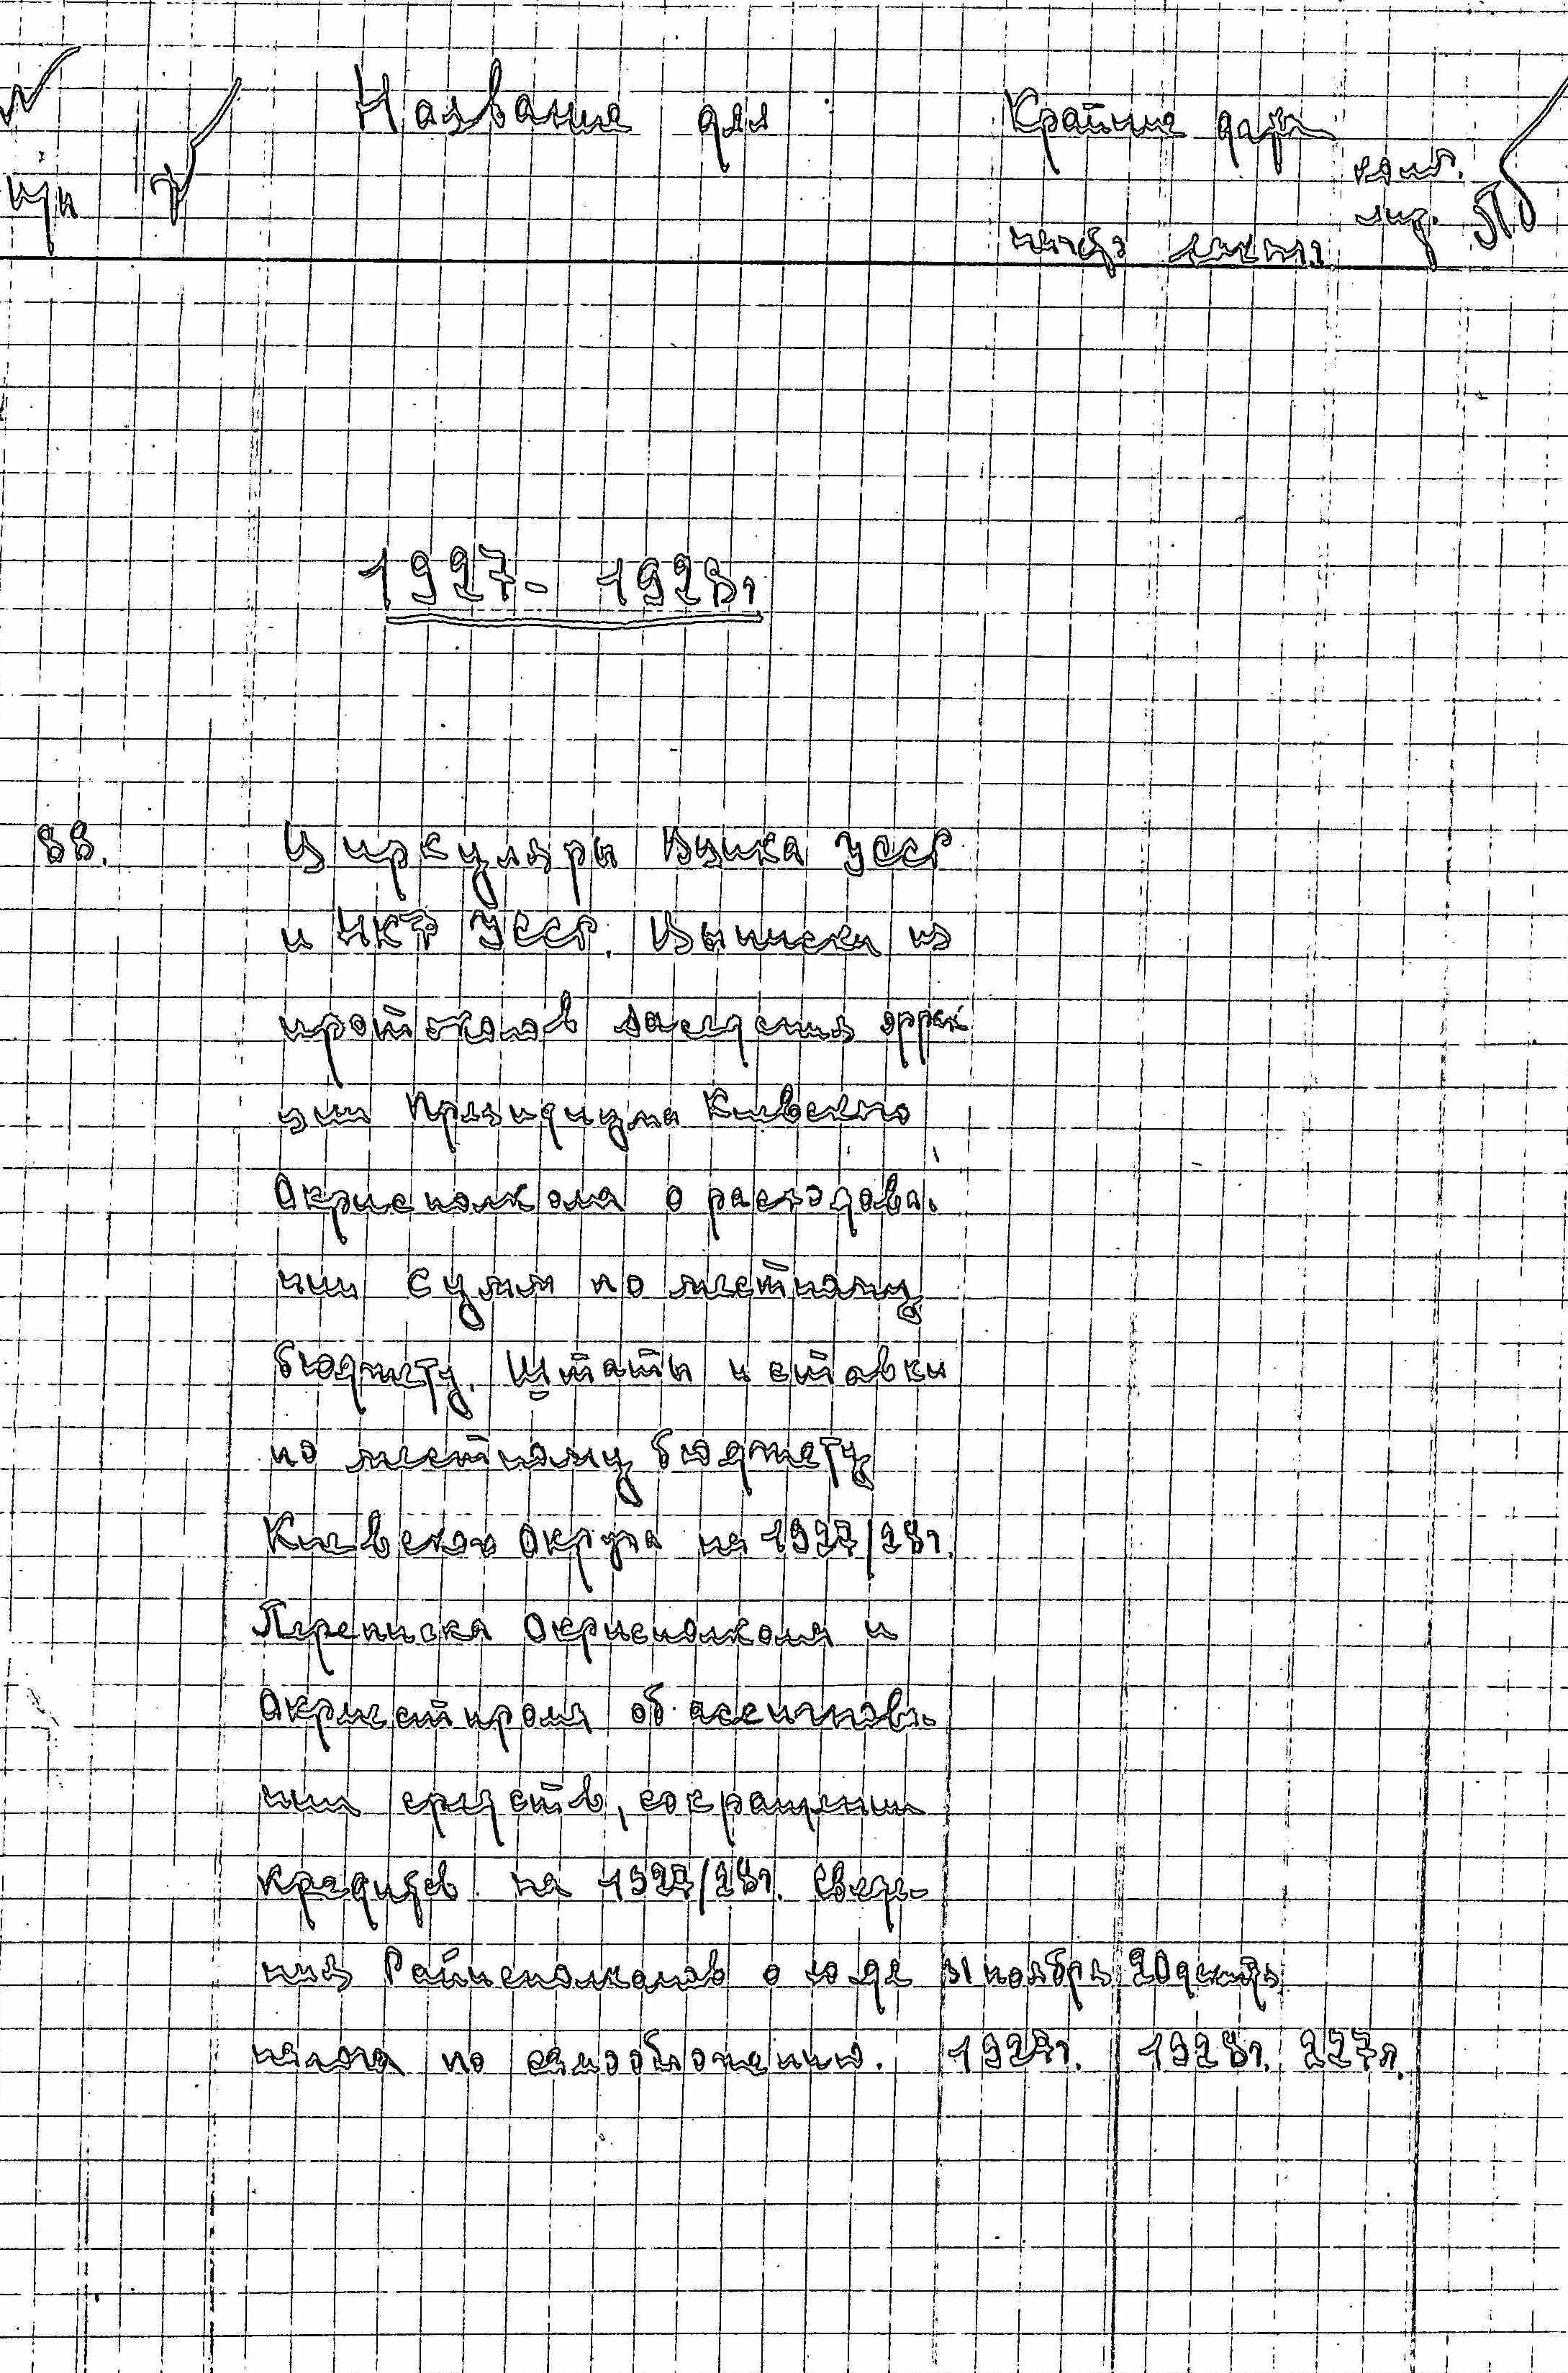 Название дел Крайние даты
п/п
колич. лист.
начало окончан.
1927 - 1928г.
88. Циркуляры ВУЦИКа УССР
и НКФ УССР. Выписки из
протоколов заседания
Президиума Киевского
Окрисполкома о расходова-
нии сумм по местному
бюджету. Штаты и ставки
по местному бюджету
Киевского Округа на 1927/28г.
Переписка Окрисполкома и
об ассигнова-
нии средств, сокращении
кредитов на 1927/28г. Сведе-
ния Райисполкомов о ходе ноябрь 20 декабр
налога по самообложению. 1927г. 1928г. 227л.